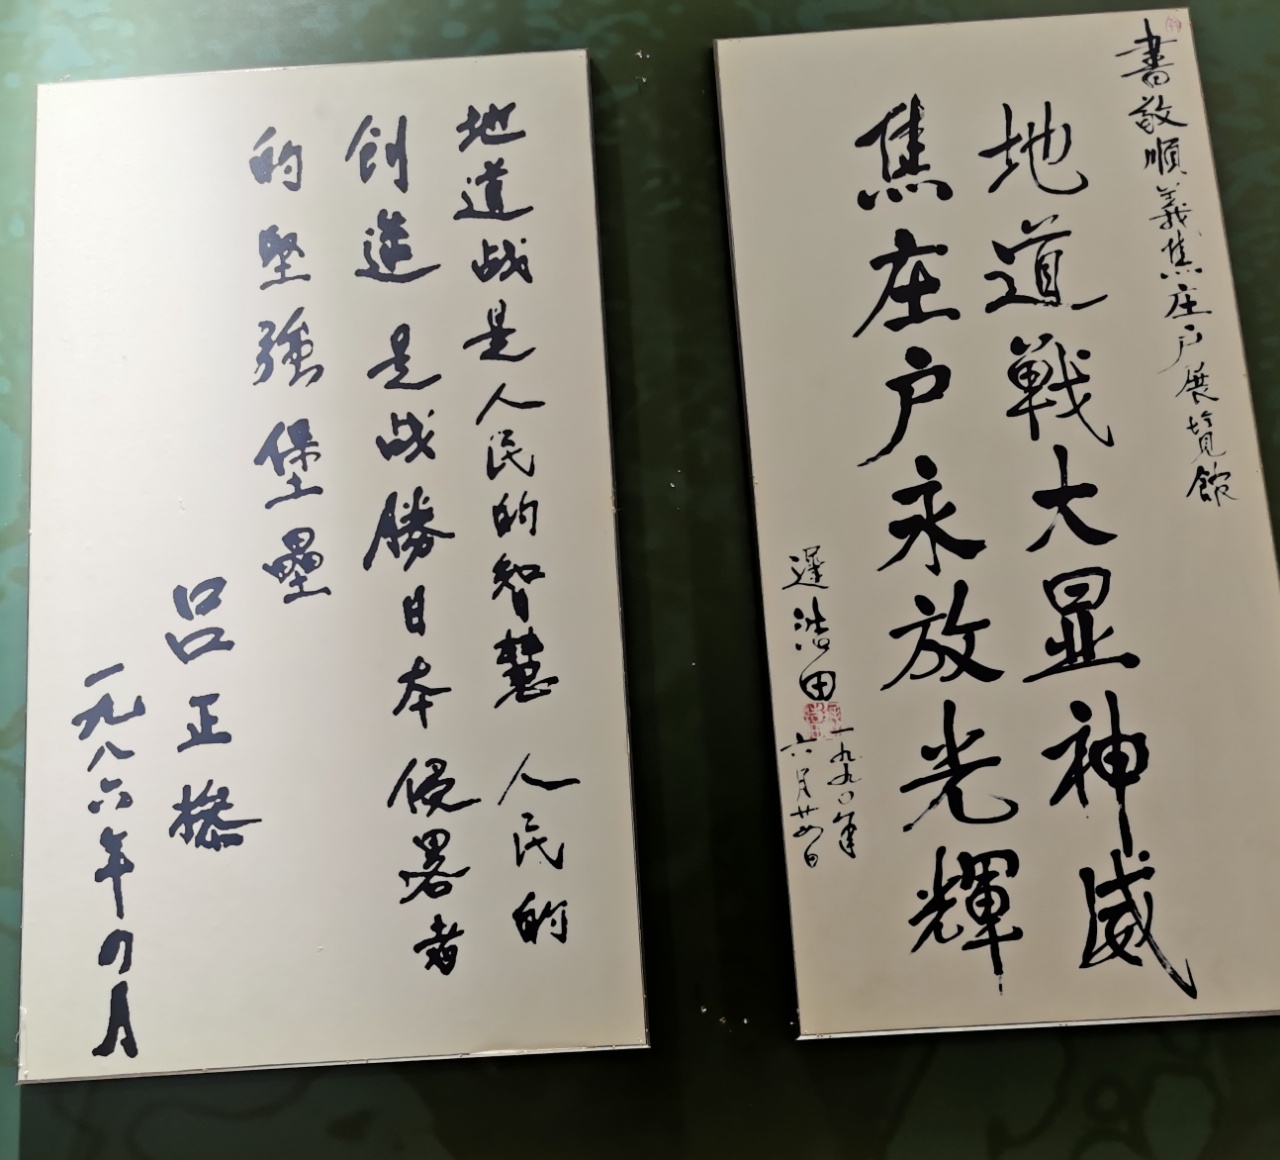 書敬順義焦庄户展覧館
地道戦大显神威
焦庄户永放光輝
遲浩田
一九九〇年
六月廿四日
地道战是人民的智慧 人民的
创造 是战勝日本侵畧者
的坚強堡壘
吕正操
一九八六年四月